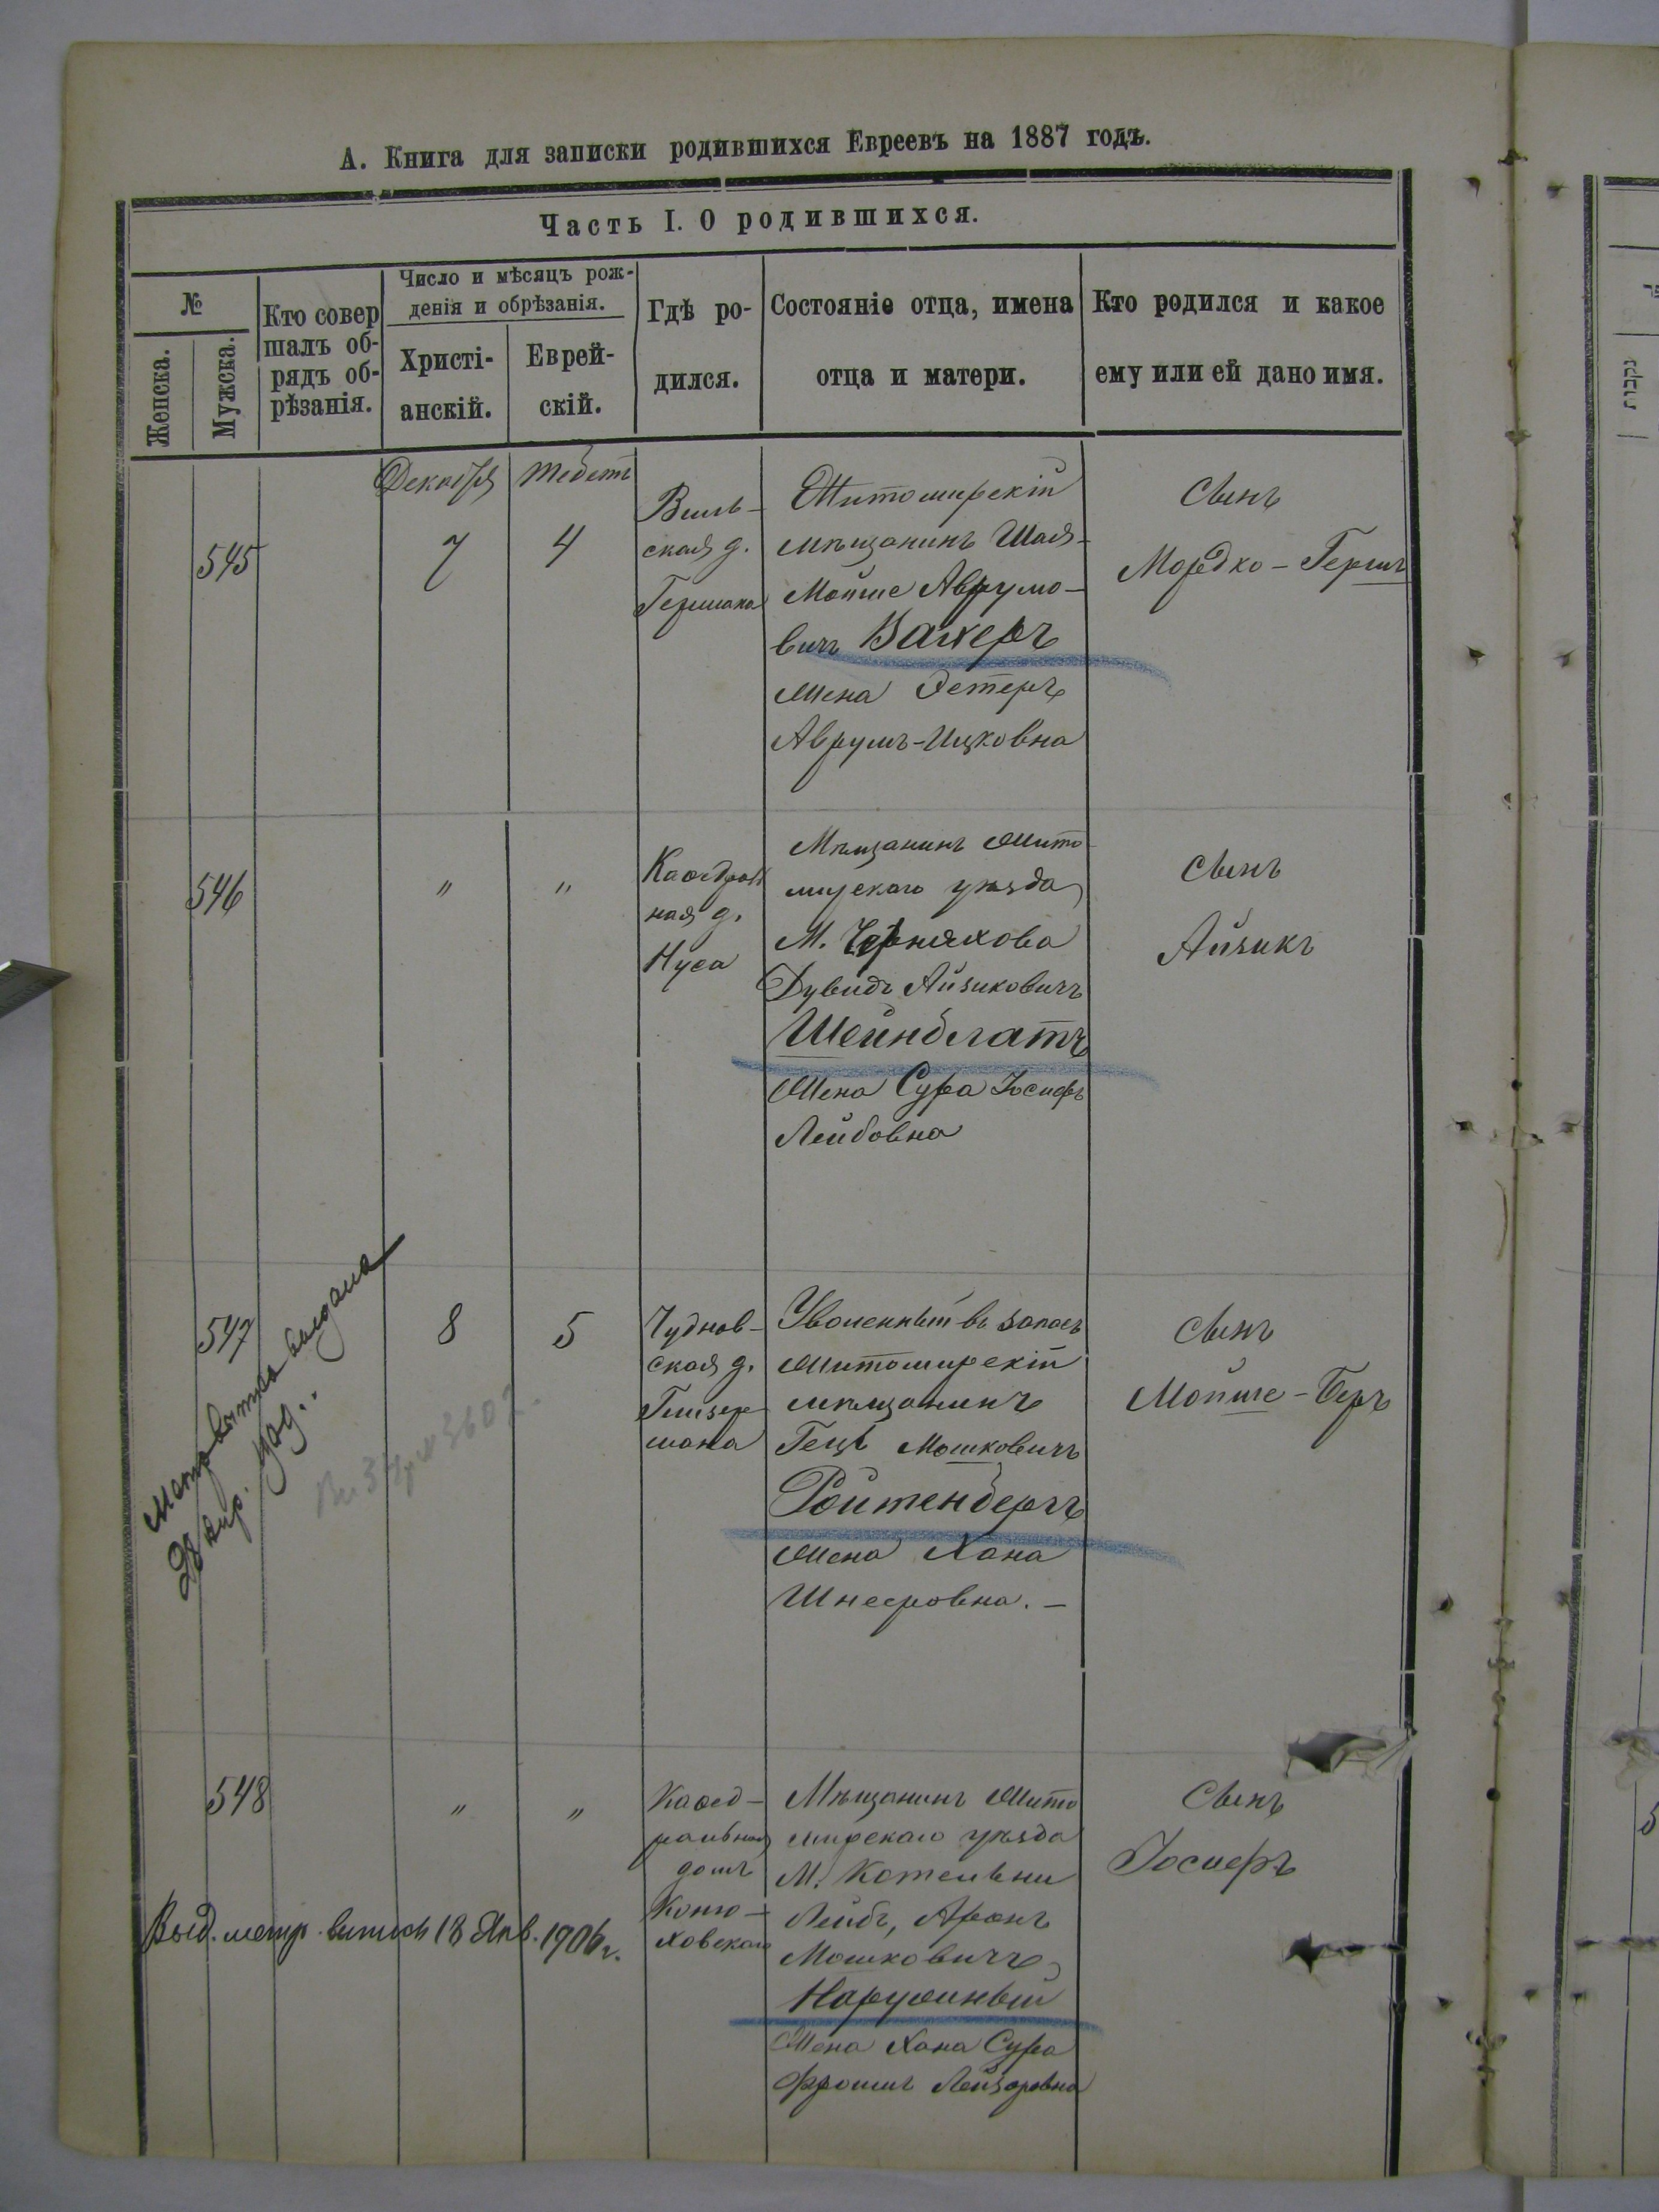 А. Книга для записки родившихся Евреевъ на 1887 годъ.
Часть I. О родившихся.
№
Женска.
Мужска.
Кто совер
шалъ об-
рядъ об-
рѣзанія.
Число и мѣсяцъ рож-
денія и обрѣзанія.
Христі-
анскій.
Еврей-
скій.
Гдѣ ро-
дился.
Состояніе отца, имена
отца и матери.
Кто родился и какое
ему или ей дано имя.
545
Декабря
7
Тебетъ
4
Виль-
ская д.
Гершмана
Житомирскій
мѣщанинъ Шая-
Мойше Аврумо-
вичъ Вахеръ
жена Эстеръ
Аврумъ-Ицковна
Сынъ
Мордко-Гершъ
546
"
"
Каѳедраль
ная д.
Нуса
Мѣщанинъ Жито-
мирскаго уѣзда
М. Черняхова
Дувидъ Айзиковичъ
Шейнблатъ
Жена Сура Іосифъ
Лейбовна
Сынъ
Айзикъ
547
8
5
Чуднов-
ская д.
мана
Уволенный въ запасъ
житомирскій
мѣщанинъ
Гецъ Мошковичъ
Ройтенбергъ
жена Хана
Шнееровна. —
Сынъ
Мойше-Беръ
выдана
548
"
"
Каѳед-
ральная
домъ
Коню-
ховскаго
Мѣщанинъ Жито
мирскаго уѣзда
М. Котельни
Лейбъ, Аронъ
Мошковичъ
Наружный
Жена Хана Сура
Фромитъ Лейзоровна
Сынъ
Іосифъ
Выд. метр. выпись 18 Янв. 1906 г.